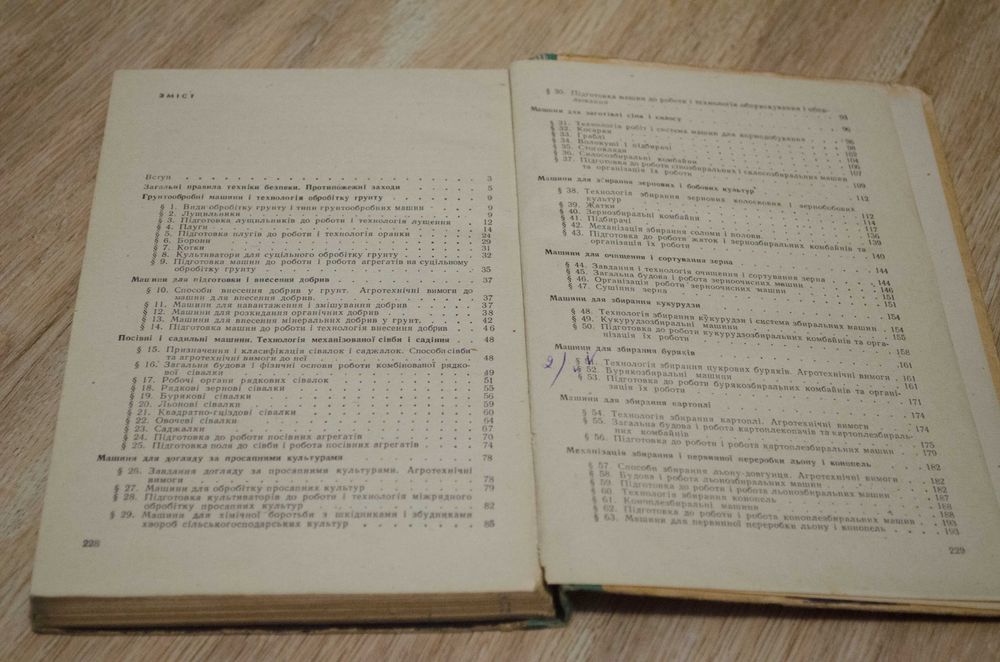 ЗМІСТ
Вступ 3
Загальні правила техніки безпеки. Протипожежні заходи 5
Грунтообробні машини і технологія обробітку грунту 9
§ 1. Види обробітку грунту і типи грунтообробних машин 9
§ 2. Лущильники 9
§ 3. Підготовка лущильників до роботи і технологія лущення 12
§ 4. Плуги 14
§ 5. Підготовка плугів до роботи і технологія оранки 24
§ 6. Борони 29
§ 7. Котки 31
§ 8. Культиватори для суцільного обробітку грунту 32
§ 9. Підготовка машин до роботи і робота агрегатів на суцільному
обробітку грунту 35
Машини для підготовки і внесення добрив 37
§ 10. Способи внесення добрив у грунт. Агротехнічні вимоги до
машин для внесення добрив 37
§ 11. Машини для навантаження і змішування добрив 37
§ 12. Машини для розкидання органічних добрив 38
§ 13. Машини для внесення мінеральних добрив у грунт 42
§ 14. Підготовка машин до роботи і технологія внесення добрив 46
Посівні і садильні машини. Технологія механізованої сівби і садіння 48
§ 15. Призначення і класифікація сівалок і саджалок. Способи сівби
та агротехнічні вимоги до неї 48
§ 16. Загальна будова і фізичні основи роботи комбінованої рядко-
вої сівалки 49
§ 17. Робочі органи рядкових сівалок 51
§ 18. Рядкові зернові сівалки 55
§ 19. Бурякові сівалки 56
§ 20. Льонові сівалки 59
§ 21. Квадратно-гніздові сівалки 60
§ 22. Овочеві сівалки 64
§ 23. Саджалки 67
§ 24. Підготовка до роботи посівних агрегатів 70
§ 25. Підготовка поля до сівби і робота посівних агрегатів 74
Машини для догляду за просапними культурами 78
§ 26. Завдання догляду за просапними культурами. Агротехнічні
вимоги 78
§ 27. Машини для обробітку просапних культур 79
§ 28. Підготовка культиваторів до роботи і технологія міжрядного
обробітку просапних культур 82
§ 29. Машини для хімічної боротьби з шкідниками і збудниками
хвороб сільськогосподарських культур 85
228
§ 30. Підготовка машин до роботи і технологія обприскування і обпи-
лювання 93
Машини для заготівлі сіна і силосу 96
§ 31. Технологія робіт і система машин для кормодобування 96
§ 32. Косарки 98
§ 33. Граблі
§ 34. Волокуші і підбирачі
§ 35. Стогоклади 104
§ 36. Силосозбиральні комбайни 106
§ 37. Підготовка до роботи сінозбиральних і силосозбиральних машин 107
та організація їх роботи 109
Машини для збирання зернових і бобових культур 112
§ 38. Технологія збирання зернових колоскових і зернобобових
культур 112
§ 39. Жатки 114
§ 40. Зернозбиральні комбайни 117
§ 41. Підбирачі 136
§ 42. Механізація збирання соломи і полови 139
§ 43. Підготовка до роботи жаток і зернозбиральних комбайнів та
організація їх роботи 140
Машини для очищення і сортування зерна 144
§ 44. Завдання і технологія очищення і сортування зерна 144
§ 45. Загальна будова і робота зерноочисних машин 146
§ 46. Організація роботи зерноочисних машин 151
§ 47. Сушіння зерна 151
Машини для збирання кукурудзи 154
§ 48. Технологія збирання кукурудзи і система збиральних машин 154
§ 49. Кукурудзозбиральні машини 155
§ 50. Підготовка до роботи кукурудзозбиральних комбайнів та орга-
нізація їх роботи 158
Машини для збирання буряків 161
2) § 51. Технологія збирання цукрових буряків. Агротехнічні вимоги 161
§ 52. Бурякозбиральні машини 161
§ 53. Підготовка до роботи бурякозбиральних комбайнів та органі-
зація їх роботи 171
Машини для збирання картоплі 174
§ 54. Технологія збирання картоплі. Агротехнічні вимоги 174
§ 55. Загальна будова і робота картоплекопачів та картоплезбираль-
них комбайнів 175
§ 56. Підготовка до роботи і робота картоплезбиральних машин 179
Механізація збирання і первинної переробки льону і конопель 182
§ 57. Способи збирання льону-довгунця. Агротехнічні вимоги 182
§ 58. Будова і робота льонозбиральних машин 182
§ 59. Підготовка до роботи і робота льонозбиральних машин 187
§ 60. Технологія збирання конопель 188
§ 61. Коноплезбиральні машини 188
§ 62. Підготовка до роботи і робота коноплезбиральних машин 193
§ 63. Машини для первинної переробки льону і конопель 193
229